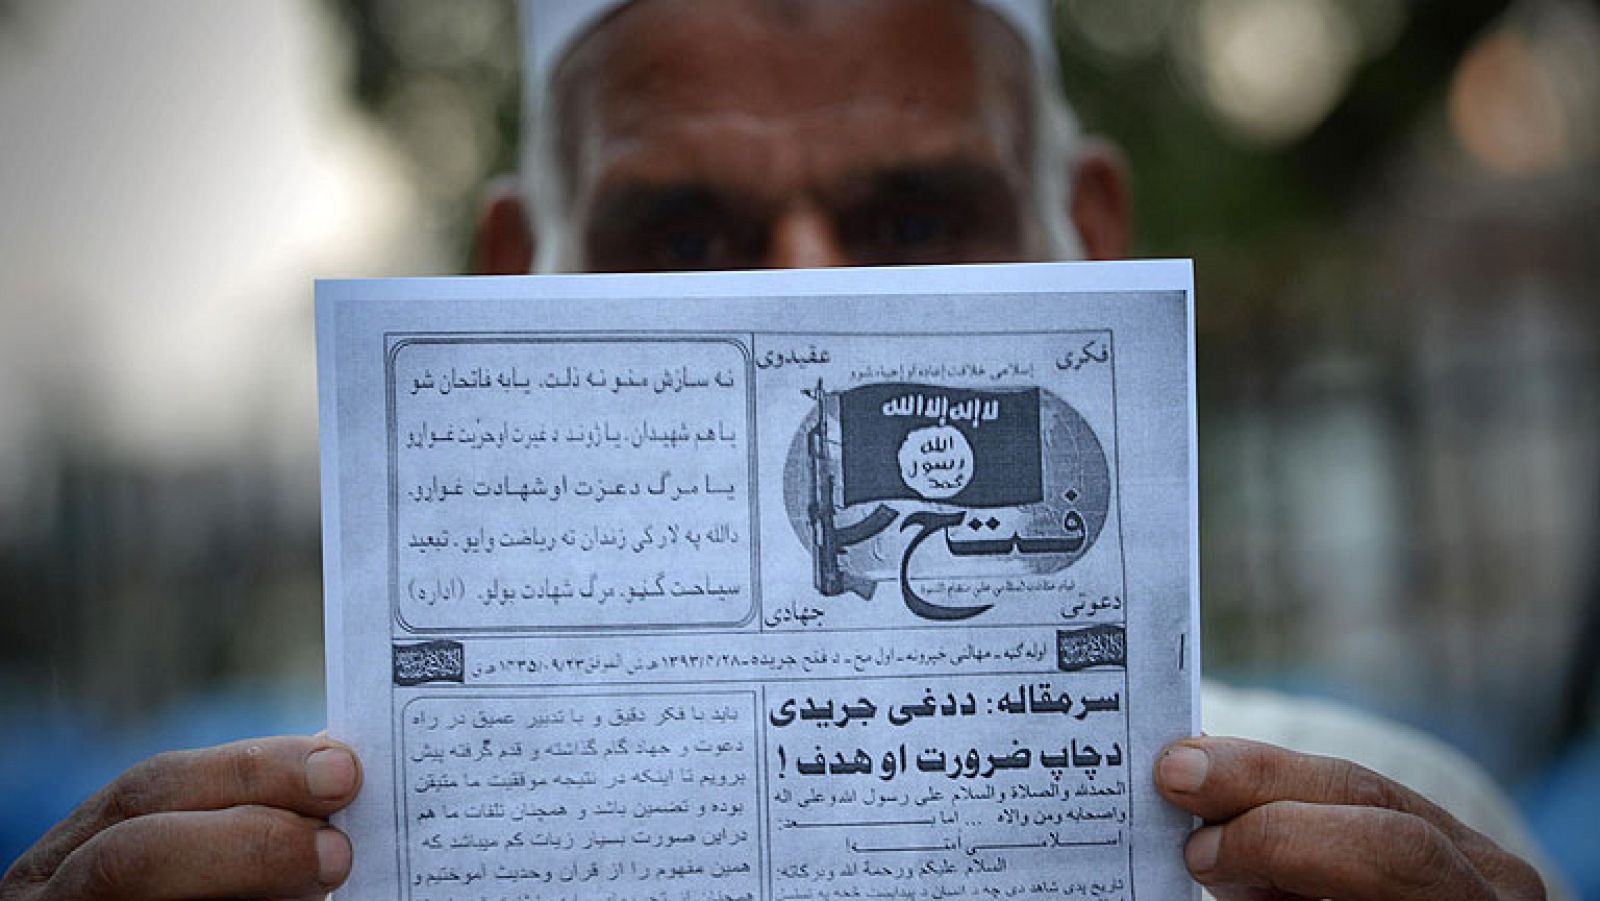 فکری
عقیدوی
اسلامی خلافت اعاده او احیاء شوو
لا إله إلا الله
الله
رسول
محمد
فتح
دعوتی
جهادی
نه سازش منو نه ذلت. یا به فاتحان شو
یا هم شهیدان. یا ژوند دغیرت او حریّت غواړو
یا مرگ دعزت او شهادت غواړو.
دالله په لار کی زندان ته ریاضت وایو. تبعید
سیاحت گڼیو. مرگ شهادت بولو. (اداره)
اوله گڼه ـ میاشتنی خپرونه ـ اول مخ ـ د فتح جریده ـ ۱۳۹۳/۴/۲۸ هـ ش الموافق ۱۴۳۵/۰۹/۲۳ هـ ق
سرمقاله: ددغی جریدی
دچاپ ضرورت او هدف !
الحمدلله والصلاة والسلام علی رسول الله وعلی اله
واصحابه ومن والاه ... اما بـــــعد:
اسـلامـــي أمتـــه!
السلام علیکم ورحمة الله وبرکاته:
تاریخ یدی شاهد دی چه د انسان
باید با فکر دقیق و با تدبیر عمیق در راه
دعوت و جهاد گام گذاشته و قدم گرفته پیش
برویم تا اینکه در نتیجه موفقیت ما متیقن
بوده و تضمین باشد و همچنان تلفات ما هم
دراین صورت بسیار زیات کم میباشد که
همین مفهوم را از قرآن وحدیث آموختیم و